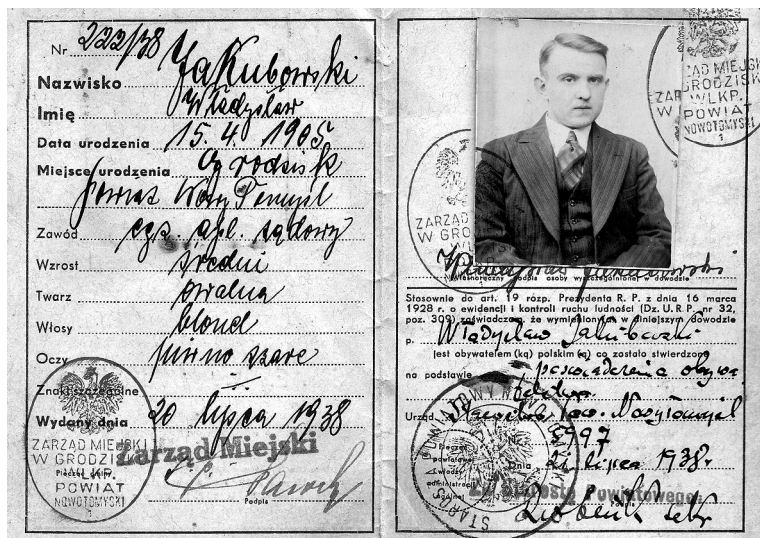 Nr 222/38
Nazwisko Jakubowski
Imię Władysław
Data urodzenia 15. 4. 1905
Miejsce urodzenia Grodzisk
powiat Nowy Tomyśl
Zawód egz. apl. sądowy
Wzrost średni
Twarz owalna
Włosy blond
Oczy piwno szare
Znaki szczególne —
Wydany dnia 20 lipca 1938
ZARZĄD MIEJSKI
W GRODZISKU
WLKP.
POWIAT
NOWOTOMYSKI
1
Zarząd Miejski
Podpis
ZARZĄD MIEJSKI
W GRODZISK
WLKP.
POWIAT
NOWOTOMYSKI
1
ZARZĄD
W GRO
Władysław Jakubowski
Własnoręczny podpis osoby wyszczególnionej w dowodzie
Stosownie do art. 19 rozp. Prezydenta R. P. z dnia 16 marca
1928 r. o ewidencji i kontroli ruchu ludności (Dz. U. R. P. nr 32,
poz. 309) zaświadczam, że wymieniony(a) w niniejszym dowodzie
p. Władysław Jakubowski
jest obywatelem (ką) polskim (ą) co zostało stwierdzone
na podstawie poświadczenia obywa
telstwa
Urząd Starostwo Pow. Nowytomyśl
Nr 5997
Dnia 21 lipca 1938 r.
Pieczęć
powiatowej
władzy
administracji
ogólnej
Za Starostę Powiatowego
Podpis
sekr